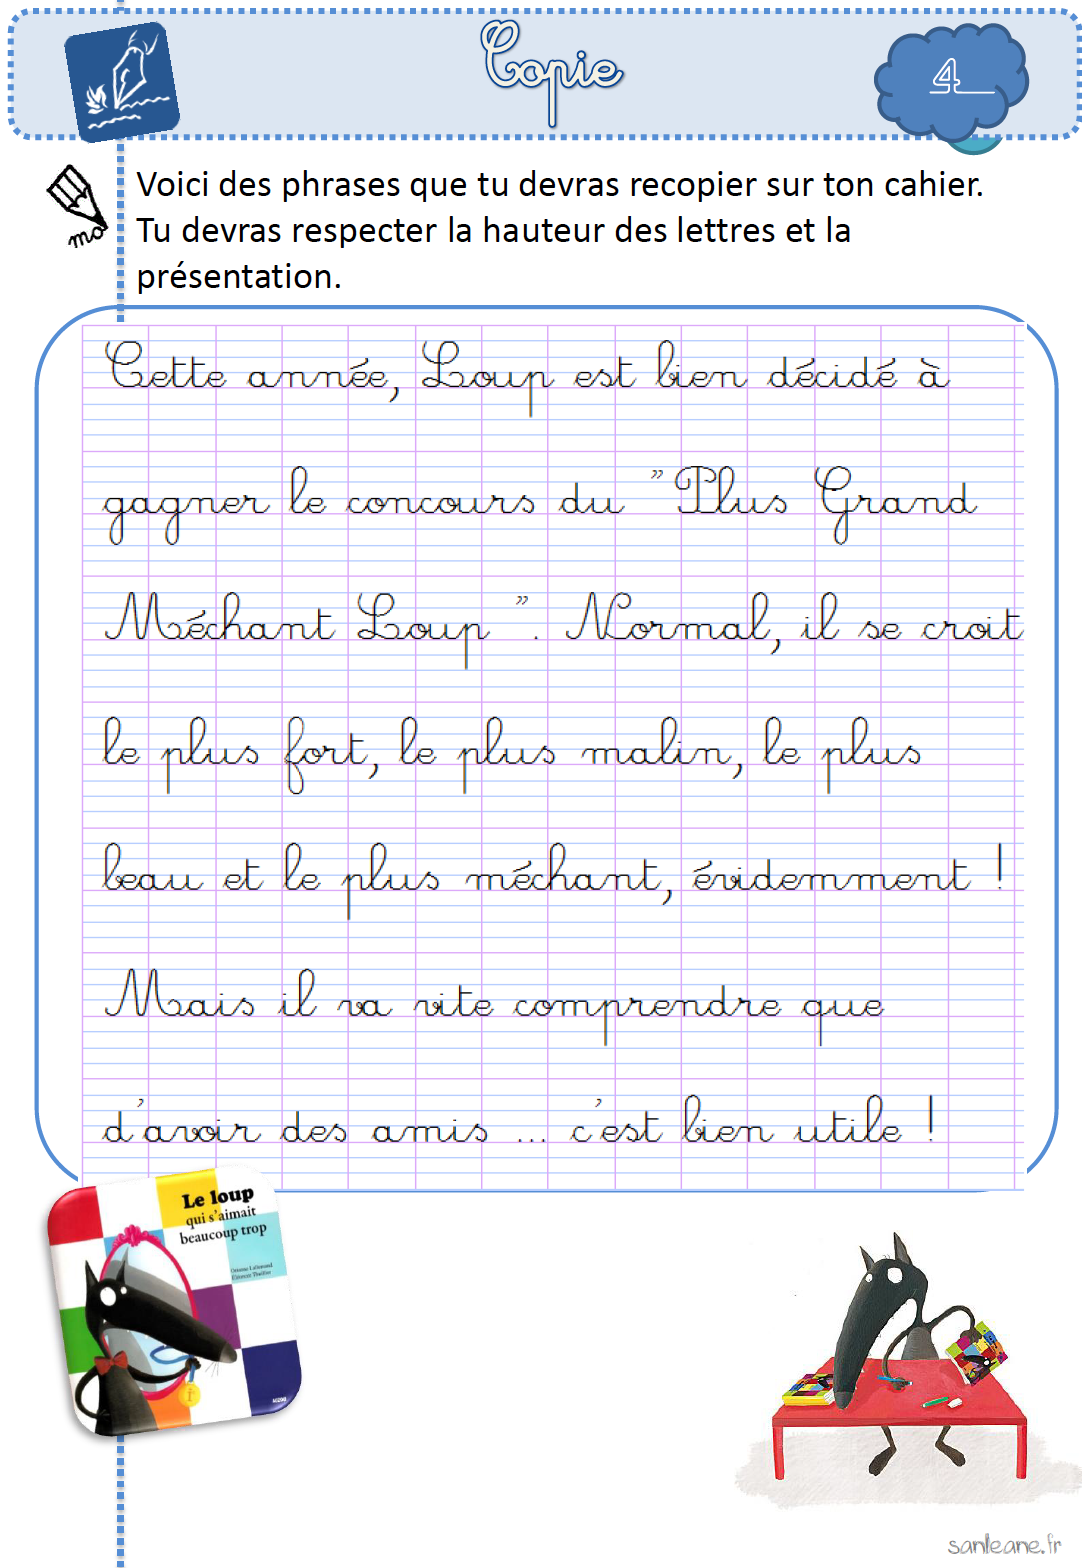 Copie
4
Voici des phrases que tu devras recopier sur ton cahier.
Tu devras respecter la hauteur des lettres et la
présentation.
mo
Cette année, Loup est bien décidé à
gagner le concours du "Plus Grand
Méchant Loup ". Normal, il se croit
le plus fort, le plus malin, le plus
beau et le plus méchant, évidemment !
Mais il va vite comprendre que
d'avoir des amis ... c'est bien utile !
Le loup
qui s'aimait
beaucoup trop
Orianne Lallemand
Éléonore Thuillier
sanleane.fr